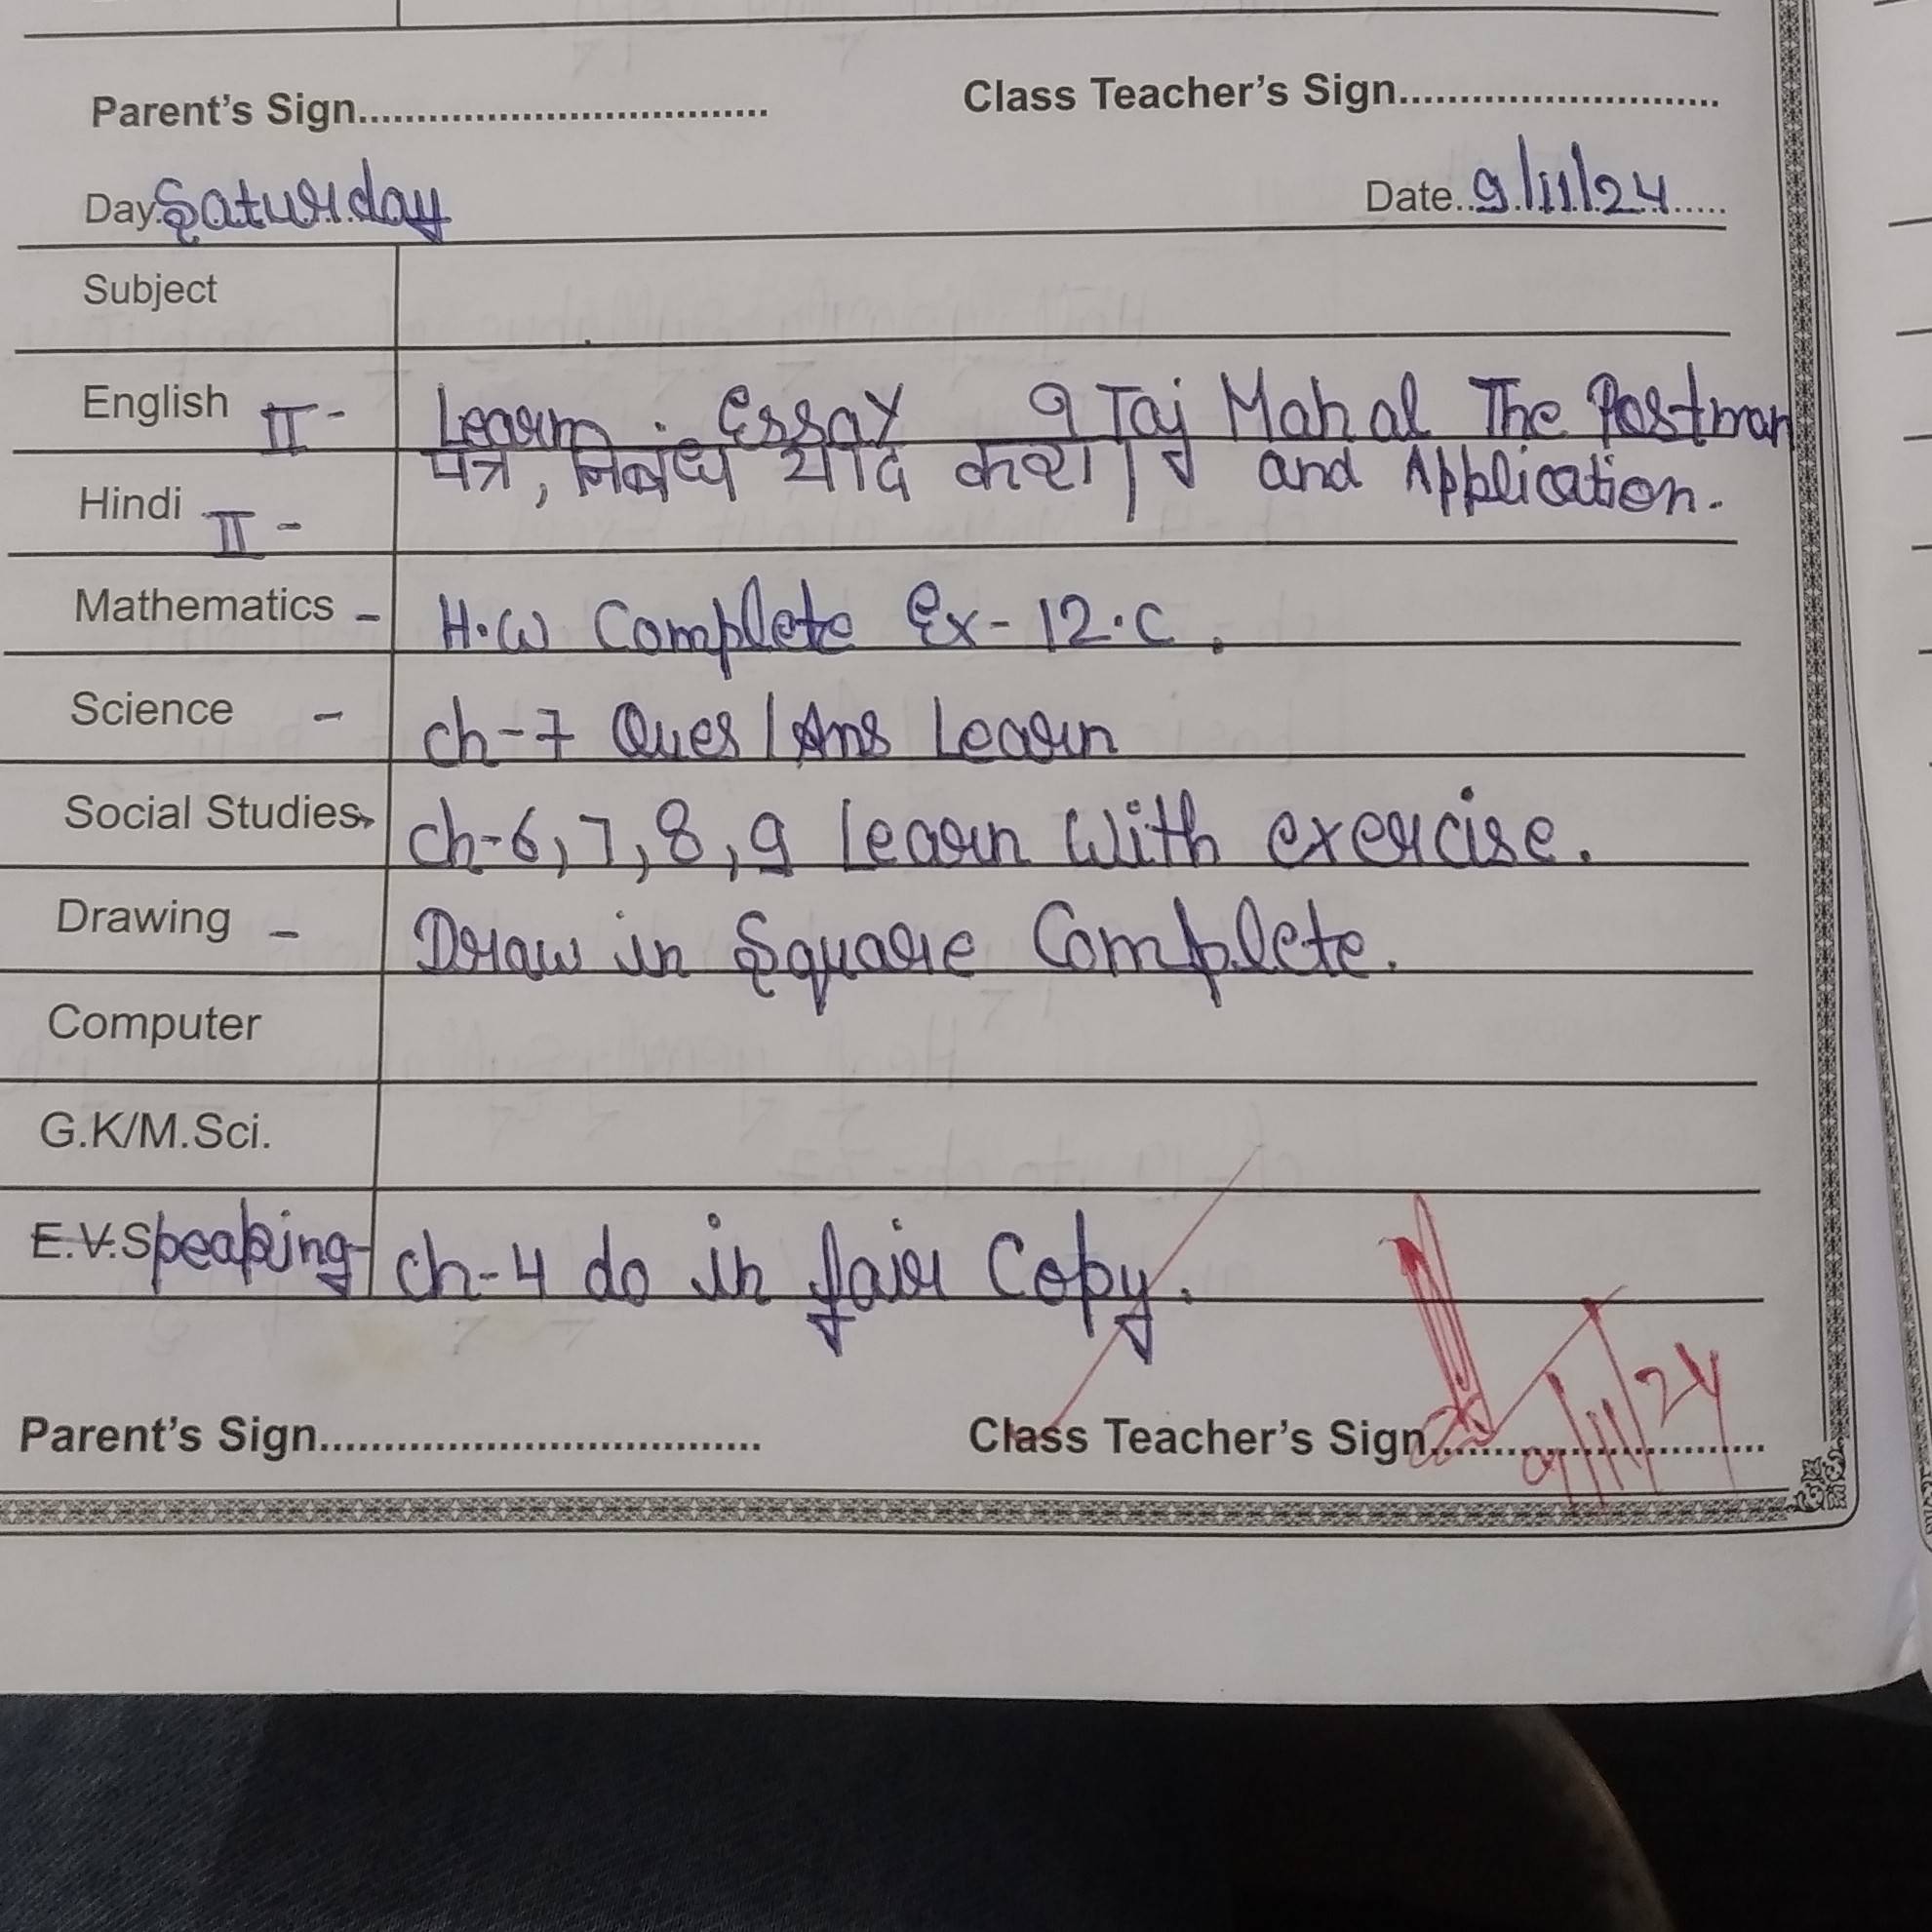 Parent's Sign.................................. Class Teacher's Sign...........................
Day Saturday Date 9/11/24
Subject
English II - Learn : Essay Taj Mahal The Postman
and Application.
Hindi II - पत्र, निबंध याद करो।
Mathematics - H.W Complete Ex-12.C.
Science - Ch-7 Ques/Ans Learn
Social Studies Ch-6,7,8,9 learn with exercise.
Drawing - Draw in Square Complete.
Computer
G.K/M.Sci.
E.V.Speaking- Ch-4 do in fair Copy.
Parent's Sign.................................. Class Teacher's Sign........................... 9/11/24